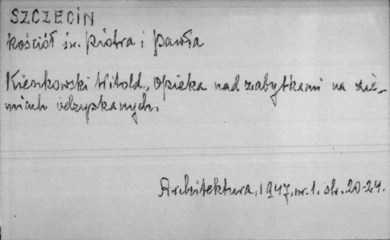 SZCZECIN
Kościół św. Piotra i Pawła
Kieszkowski Witold, Opieka nad zabytkami na zie-
miach odzyskanych.
Architektura, 1947, nr. 1. str. 20-24.